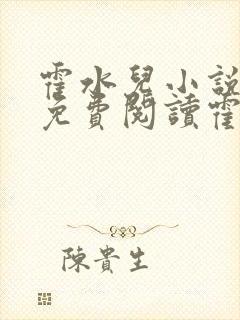 霍水兒小說
免費閱讀霍
陳貴生